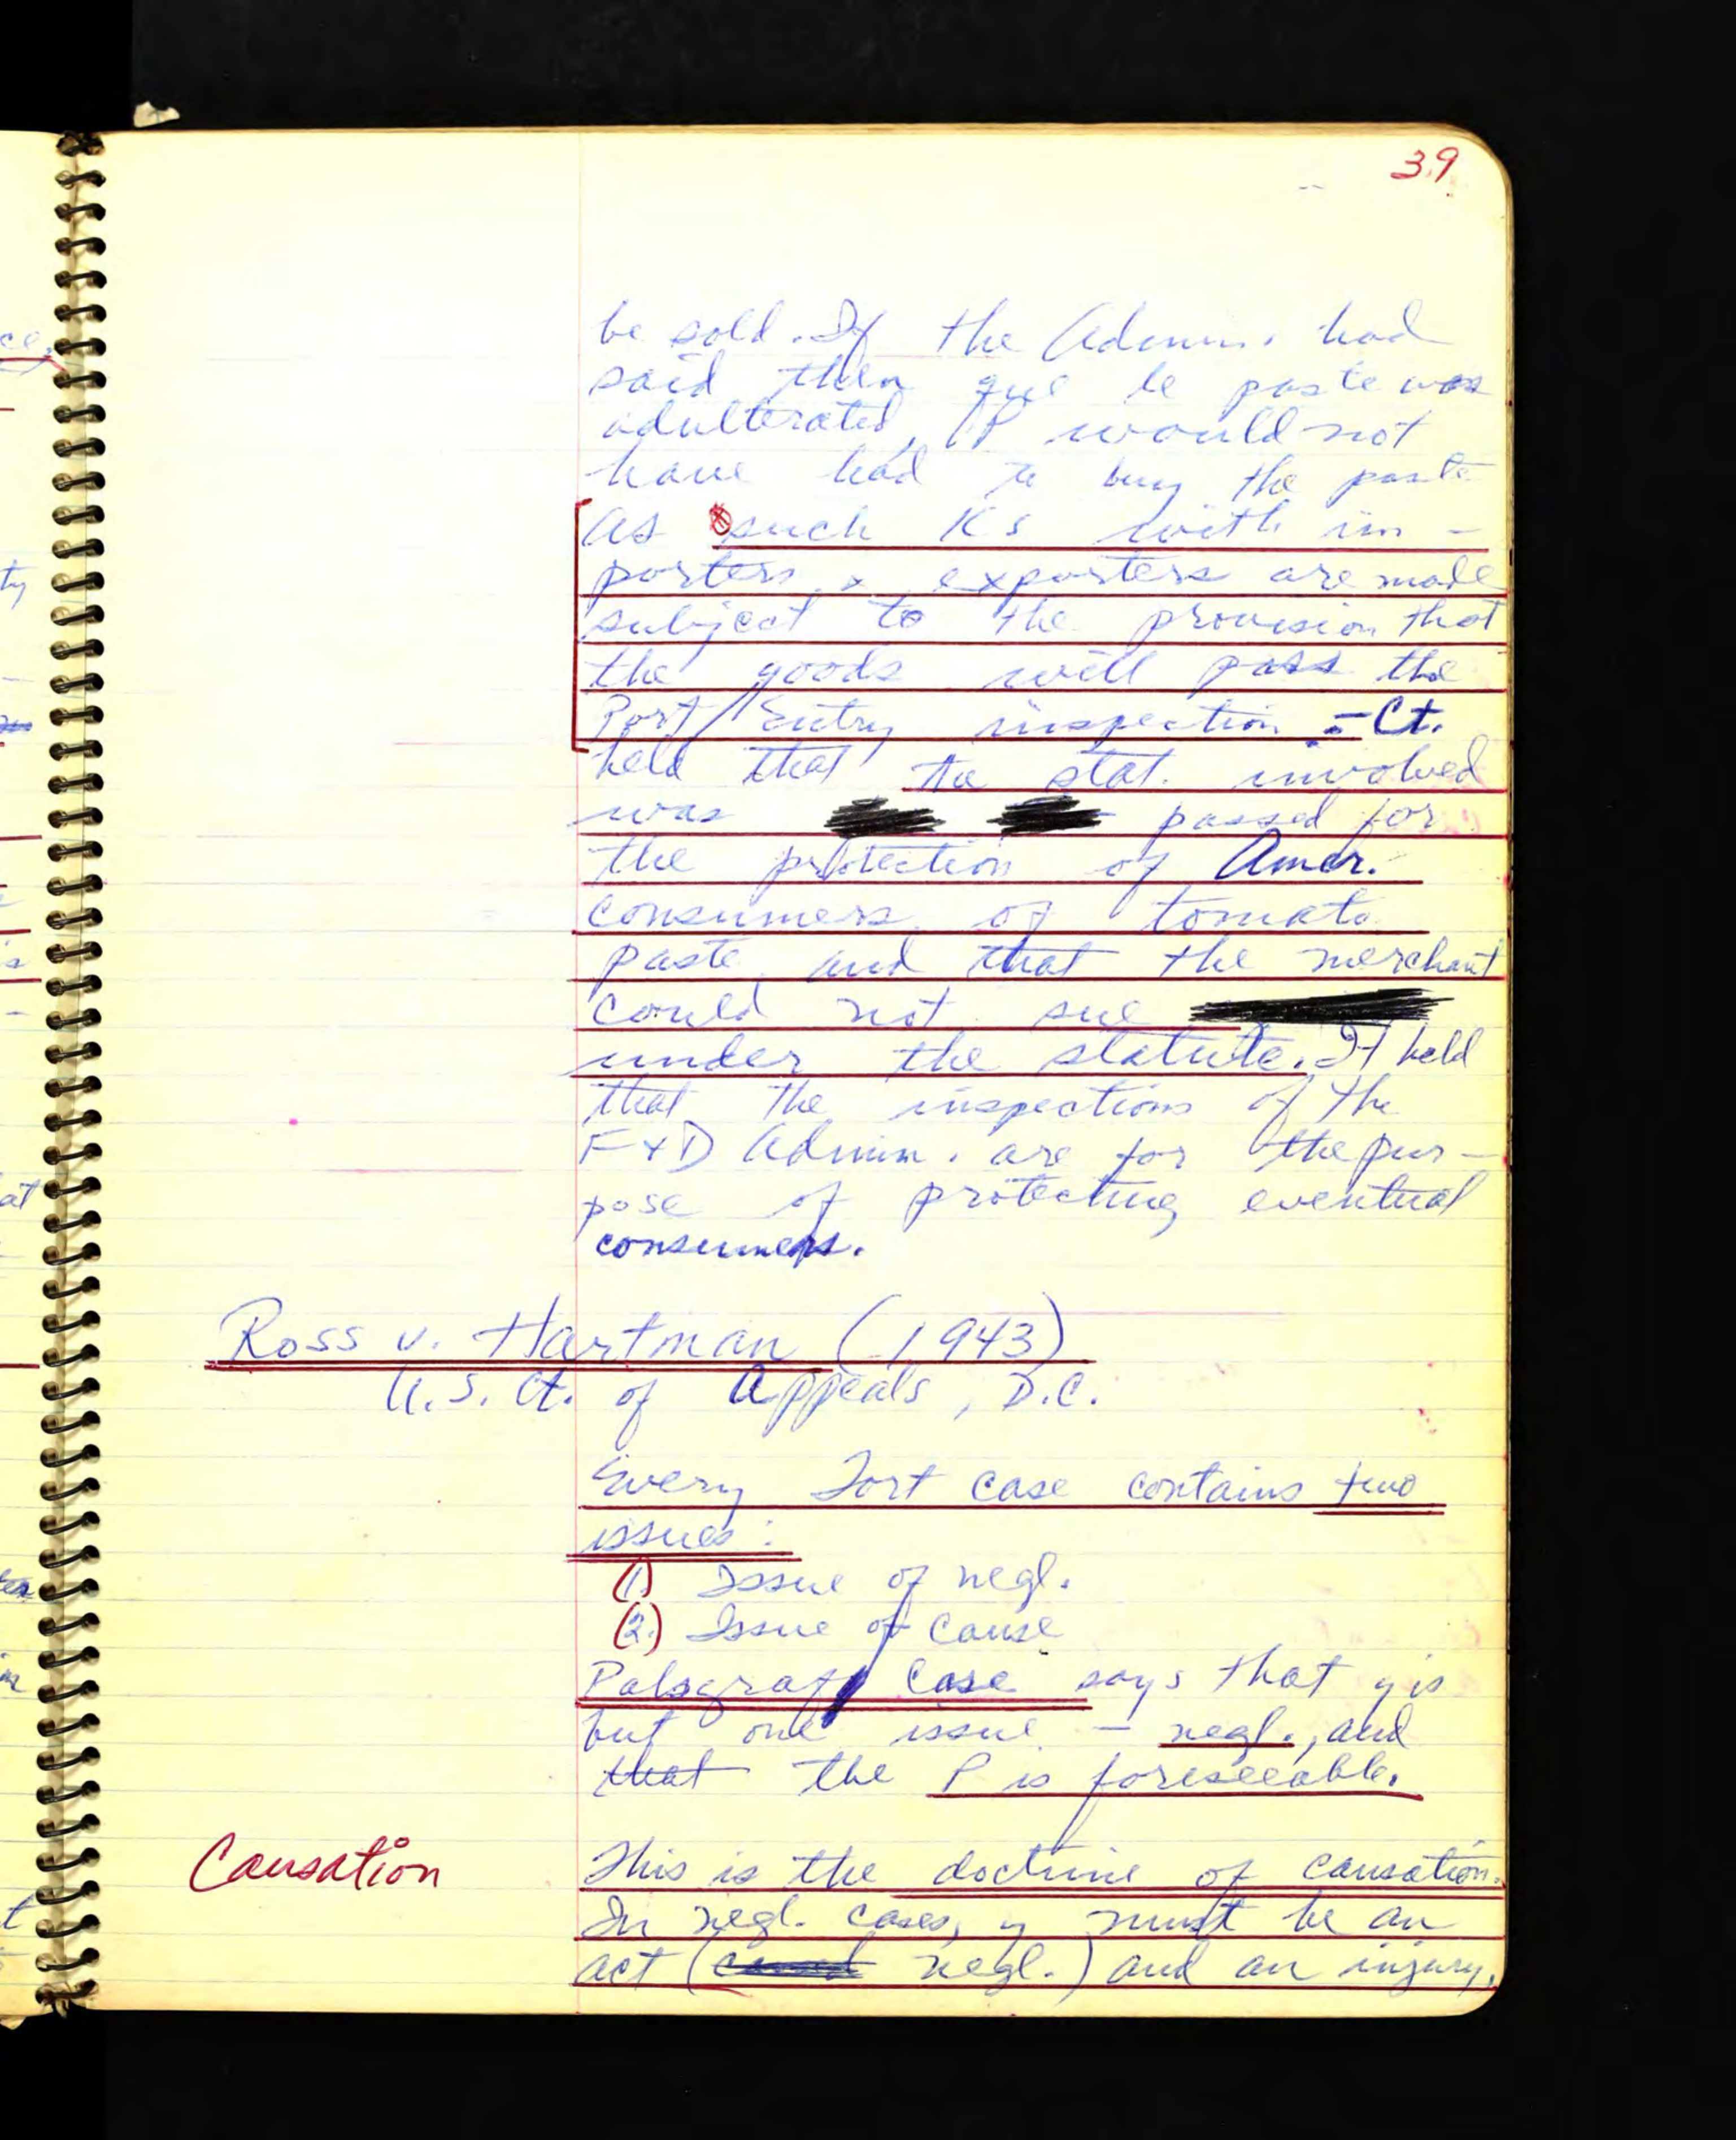 39
be sold. If the Admin. had
said then que le paste was
adulterated, P would not
have had to buy the paste
as such Ks with im-
porters & exporters are made
subject to the provision that
the goods will pass the
Port/Entry inspection - Ct.
held that the stat. involved
was passed for
the protection of Amer.
consumers of tomato
paste, and that the merchant
could not sue
under the statute. It held
that the inspections of the
F & D Admin. are for the pur-
pose of protecting eventual
consumers.
Ross v. Hartman (1943)
U.S. Ct. of Appeals, D.C.
Every Tort case contains two
issues:
(1) Issue of negl.
(2.) Issue of cause
Palsgraf Case says that y is
but one issue - negl., and
that the P is foreseeable.
Causation
This is the doctrine of causation.
In negl. cases, y must be an
act ( negl.) and an injury,